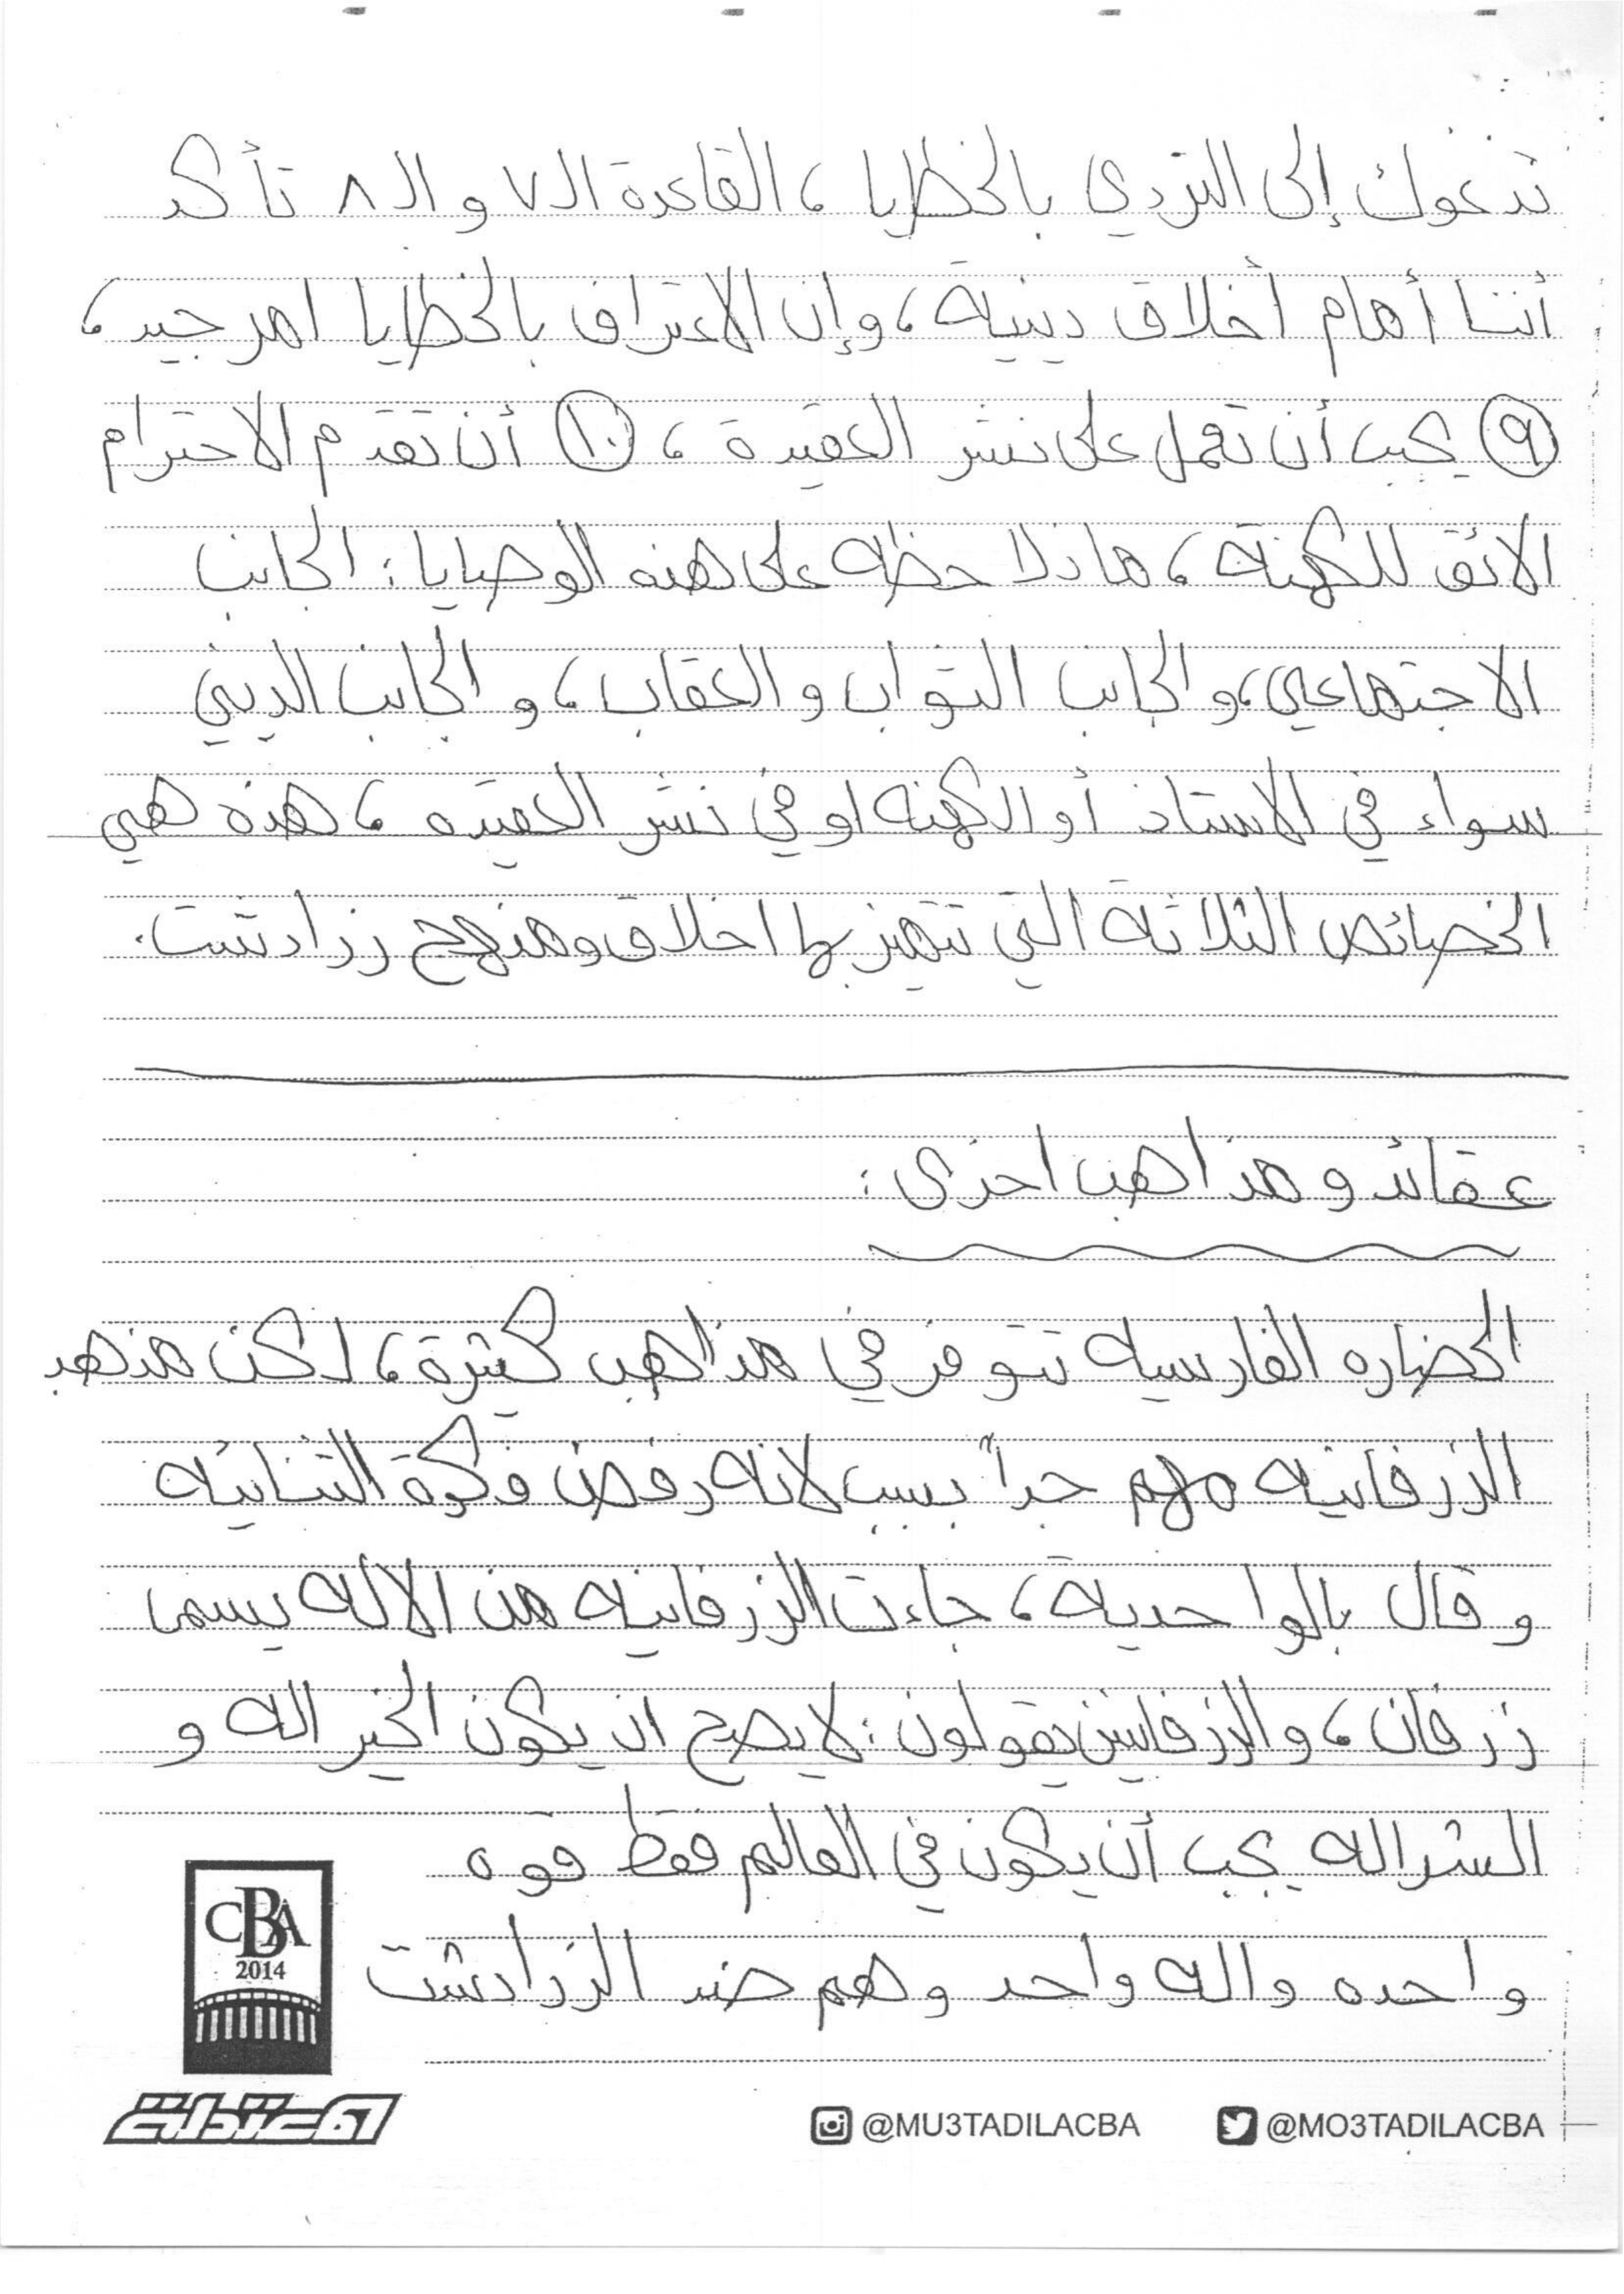 تدعوك إلى التردي بالخطايا ، القاعدة الـ ٧ و الـ ٨ تأكد
أننا أمام أخلاق دينية ، وإن الاعتراف بالخطايا امر جيد ،
٩ يجب أن تعمل على نشر العقيدة ، ١٠ أن تقدم الاحترام
الائق للكهنة ، ما نلاحظه على هذه الوصايا : الجانب
الاجتماعي ، والجانب الثواب والعقاب ، و الجانب الديني
سواء في الاستاذ أو الكهنه او في نشر العقيده ، هذه هي
الخصائص الثلاثة التي تتميز بها اخلاق ومنهج زرادتشت .
عقائد و مذاهب اخرى :
الحضاره الفارسيه تتوفر في مذاهب كثيرة ، لكن مذهب
الزرفانيه مهم جداً بسبب لانه رفض فكرة الثنائيه
و قال بالواحدية ، جاءت الزرفانيه من الاله يسمى
زرفان ، و الزرفانين يقولون : لا يصح ان يكون الخير اله و
الشر اله يجب أن يكون في العالم فقط قوه
واحده واله واحد وهم ضد الزرادشت
CBA
2014
المعتدلة
@MU3TADILACBA @MO3TADILACBA